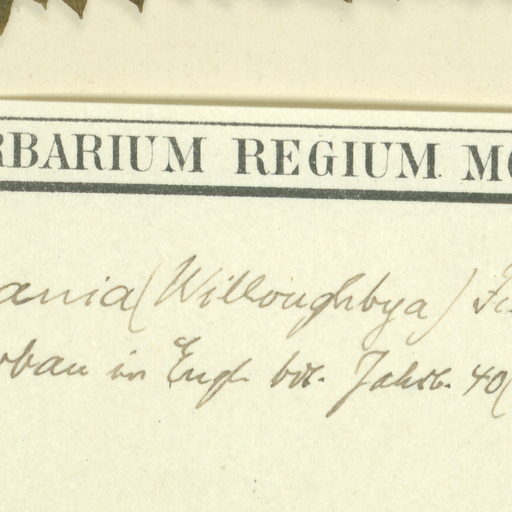 RBARIUM REGIUM MO
ania (Willoughbya)
rbau in Engl. bot. Jahrb. 40